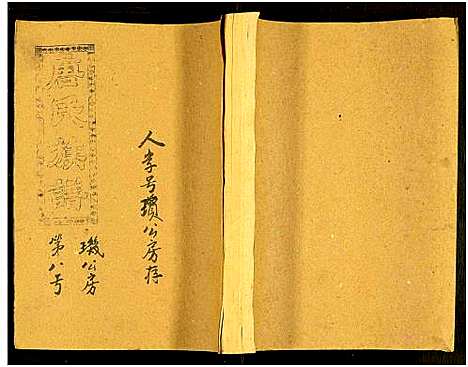 唐氏族譜
人字号瓆公房存
璣公房
第八号